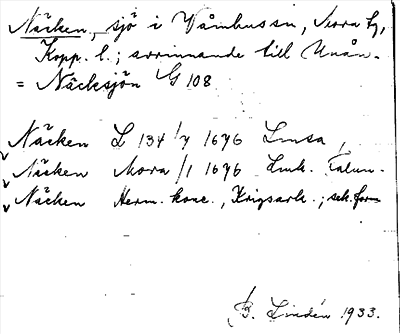 Näcken, sjö i Våmhus sn, Mora tg,
Kopp. l.; avrinnande till Unån.
= Näcksjön G 108
Näcken L 134 1/7 1696 Linsa,
Näcken Mora 1/1 1696 Lmk. Falun.
Näcken Herm. konc., Krigsark.; sek. form
B. Lindén 1933.